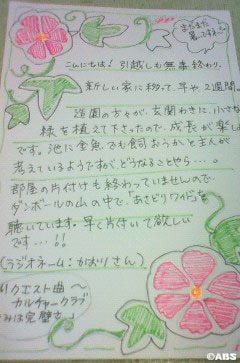 まだまだ
暑いですネ。
こんにちは! 引越しも無事終わり、
新しい家に移って、早や2週間。
造園の方々が、玄関わきに、小さな
緑を植えて下さったので、成長が楽し
です。池に金魚でも飼おうかと主人が
考えているようですがどうなることやら…。
部屋の片付けも終わっていませんので
ダンボールの山の中で、あさどりワイド
を
聴いています。早く片付いて欲しい
です…!!
(ラジオネーム:かおりさん)
リクエスト曲〜
カルチャークラブ
は完璧さ
©ABS